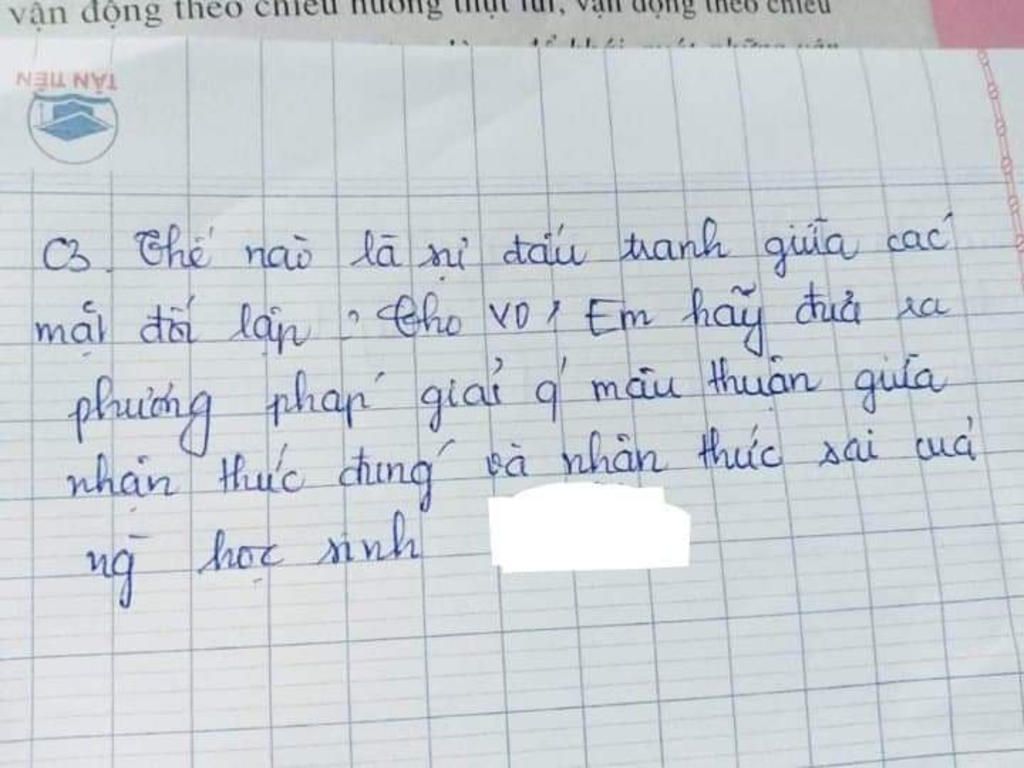 vận động theo chiều hướng thụt lùi, vận động theo chiều
TÂN TIẾN
C3. Thế nào là sự đấu tranh giữa các
mặt đối lập ? Cho VD ? Em hãy đưa ra
phương pháp giải q' mâu thuẫn giữa
nhận thức đúng và nhận thức sai của
ng học sinh